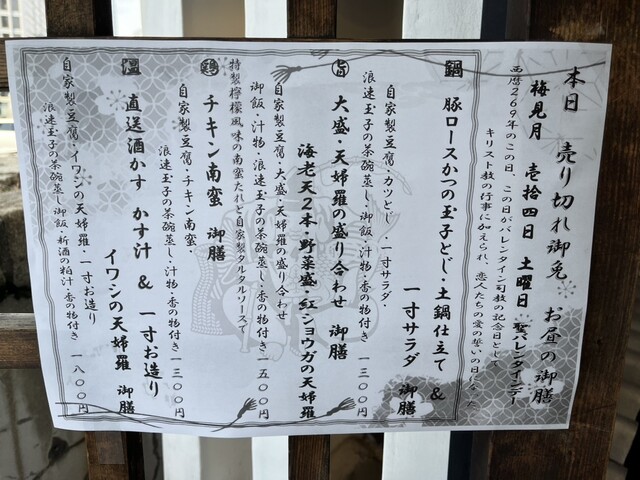 本日 売り切れ御免 お昼の御膳
梅見月 壱拾四日 土曜日 聖バレンタインデー
西暦269年のこの日、この日がバレンタイン司教の記念日として
キリスト教の行事に加えられ、恋人たちの愛の誓いの日になった
鍋 豚ロースかつの玉子とじ・土鍋仕立て &
一寸サラダ 御膳
自家製豆腐・カツとじ・一寸サラダ・
浪速玉子の茶碗蒸し・御飯・汁物・香の物付き 一三〇〇円
旨 大盛・天婦羅の盛り合わせ 御膳
海老天2本・野菜盛・紅ショウガの天婦羅
自家製豆腐・大盛・天婦羅の盛り合わせ
御飯・汁物・浪速玉子の茶碗蒸し・香の物付き 一五〇〇円
特製檸檬風味の南蛮たれと自家製タルタルソースで
鶏 チキン南蛮 御膳
自家製豆腐・チキン南蛮・
浪速玉子の茶碗蒸し・汁物・香の物付き 一三〇〇円
温 直送酒かす かす汁 & 一寸お造り
イワシの天婦羅 御膳
自家製豆腐・イワシの天婦羅・一寸お造り
浪速玉子の茶碗蒸し・御飯・新酒の粕汁・香の物付き 一八〇〇円